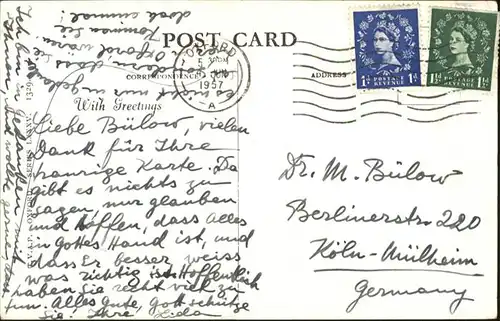 POST CARD
CORRESPONDENCE
ADDRESS
With Greetings
OXFORD
1957
A
POSTAGE REVENUE
1D
POSTAGE REVENUE
1½D
Liebe Bülow, vielen
Dank für Ihre
traurige Karte. Da
gibt es nichts zu
sagen, nur glauben
und hoffen, dass alles
in Gottes Hand ist, und
dass Er besser weiss
was richtig ist. Hoffentlich
haben Sie recht viel zu
tun. Alles Gute, Gott schütze
Sie! Ihre Lida
Ich bin in Gedanken mit
Ihnen, und wollte gerne, dass
Kommen Sie
doch einmal!
Dr. M. Bülow
Berlinerstr. 220
Köln-Mülheim
Germany